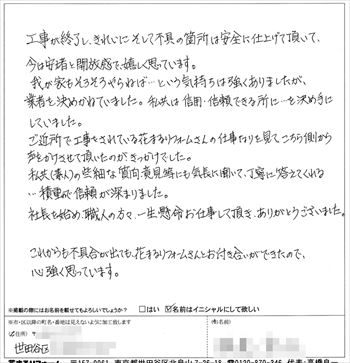 工事が終了し、きれいに そして不具の箇所は安全に仕上げて頂いて、
今は安堵と開放感で、嬉しく思います。
我が家もそろそろやらねば…という気持ちは強くありましたが、
業者を決めかねていました。私共は信用・信頼できる所に…を決め手に
していました。
ご近所で工事をされている花まるリフォームさんの仕事ぶりを見て、こちら側から
声をかけさせて頂いたのがきっかけでした。
私共(素人)の些細な質問、意見等にも気長に聞いて、丁寧に答えてくれる
…積重ねで信頼が深まりました。
社長を始め、職人の方々、一生懸命お仕事して頂き、ありがとうございました。
これからも不具合が出ても、花まるリフォームさんとお付き合いができたので、
心強く思っています。
※掲載の際にはお名前を載せてもよろしいでしょうか? □はい ☑名前はイニシャルにして欲しい
※市・区以降の町名・番地は見えないように加工致します
ご住所) 世田谷区
お名前)
〒157-0061 東京都世田谷区北烏山7-26-18